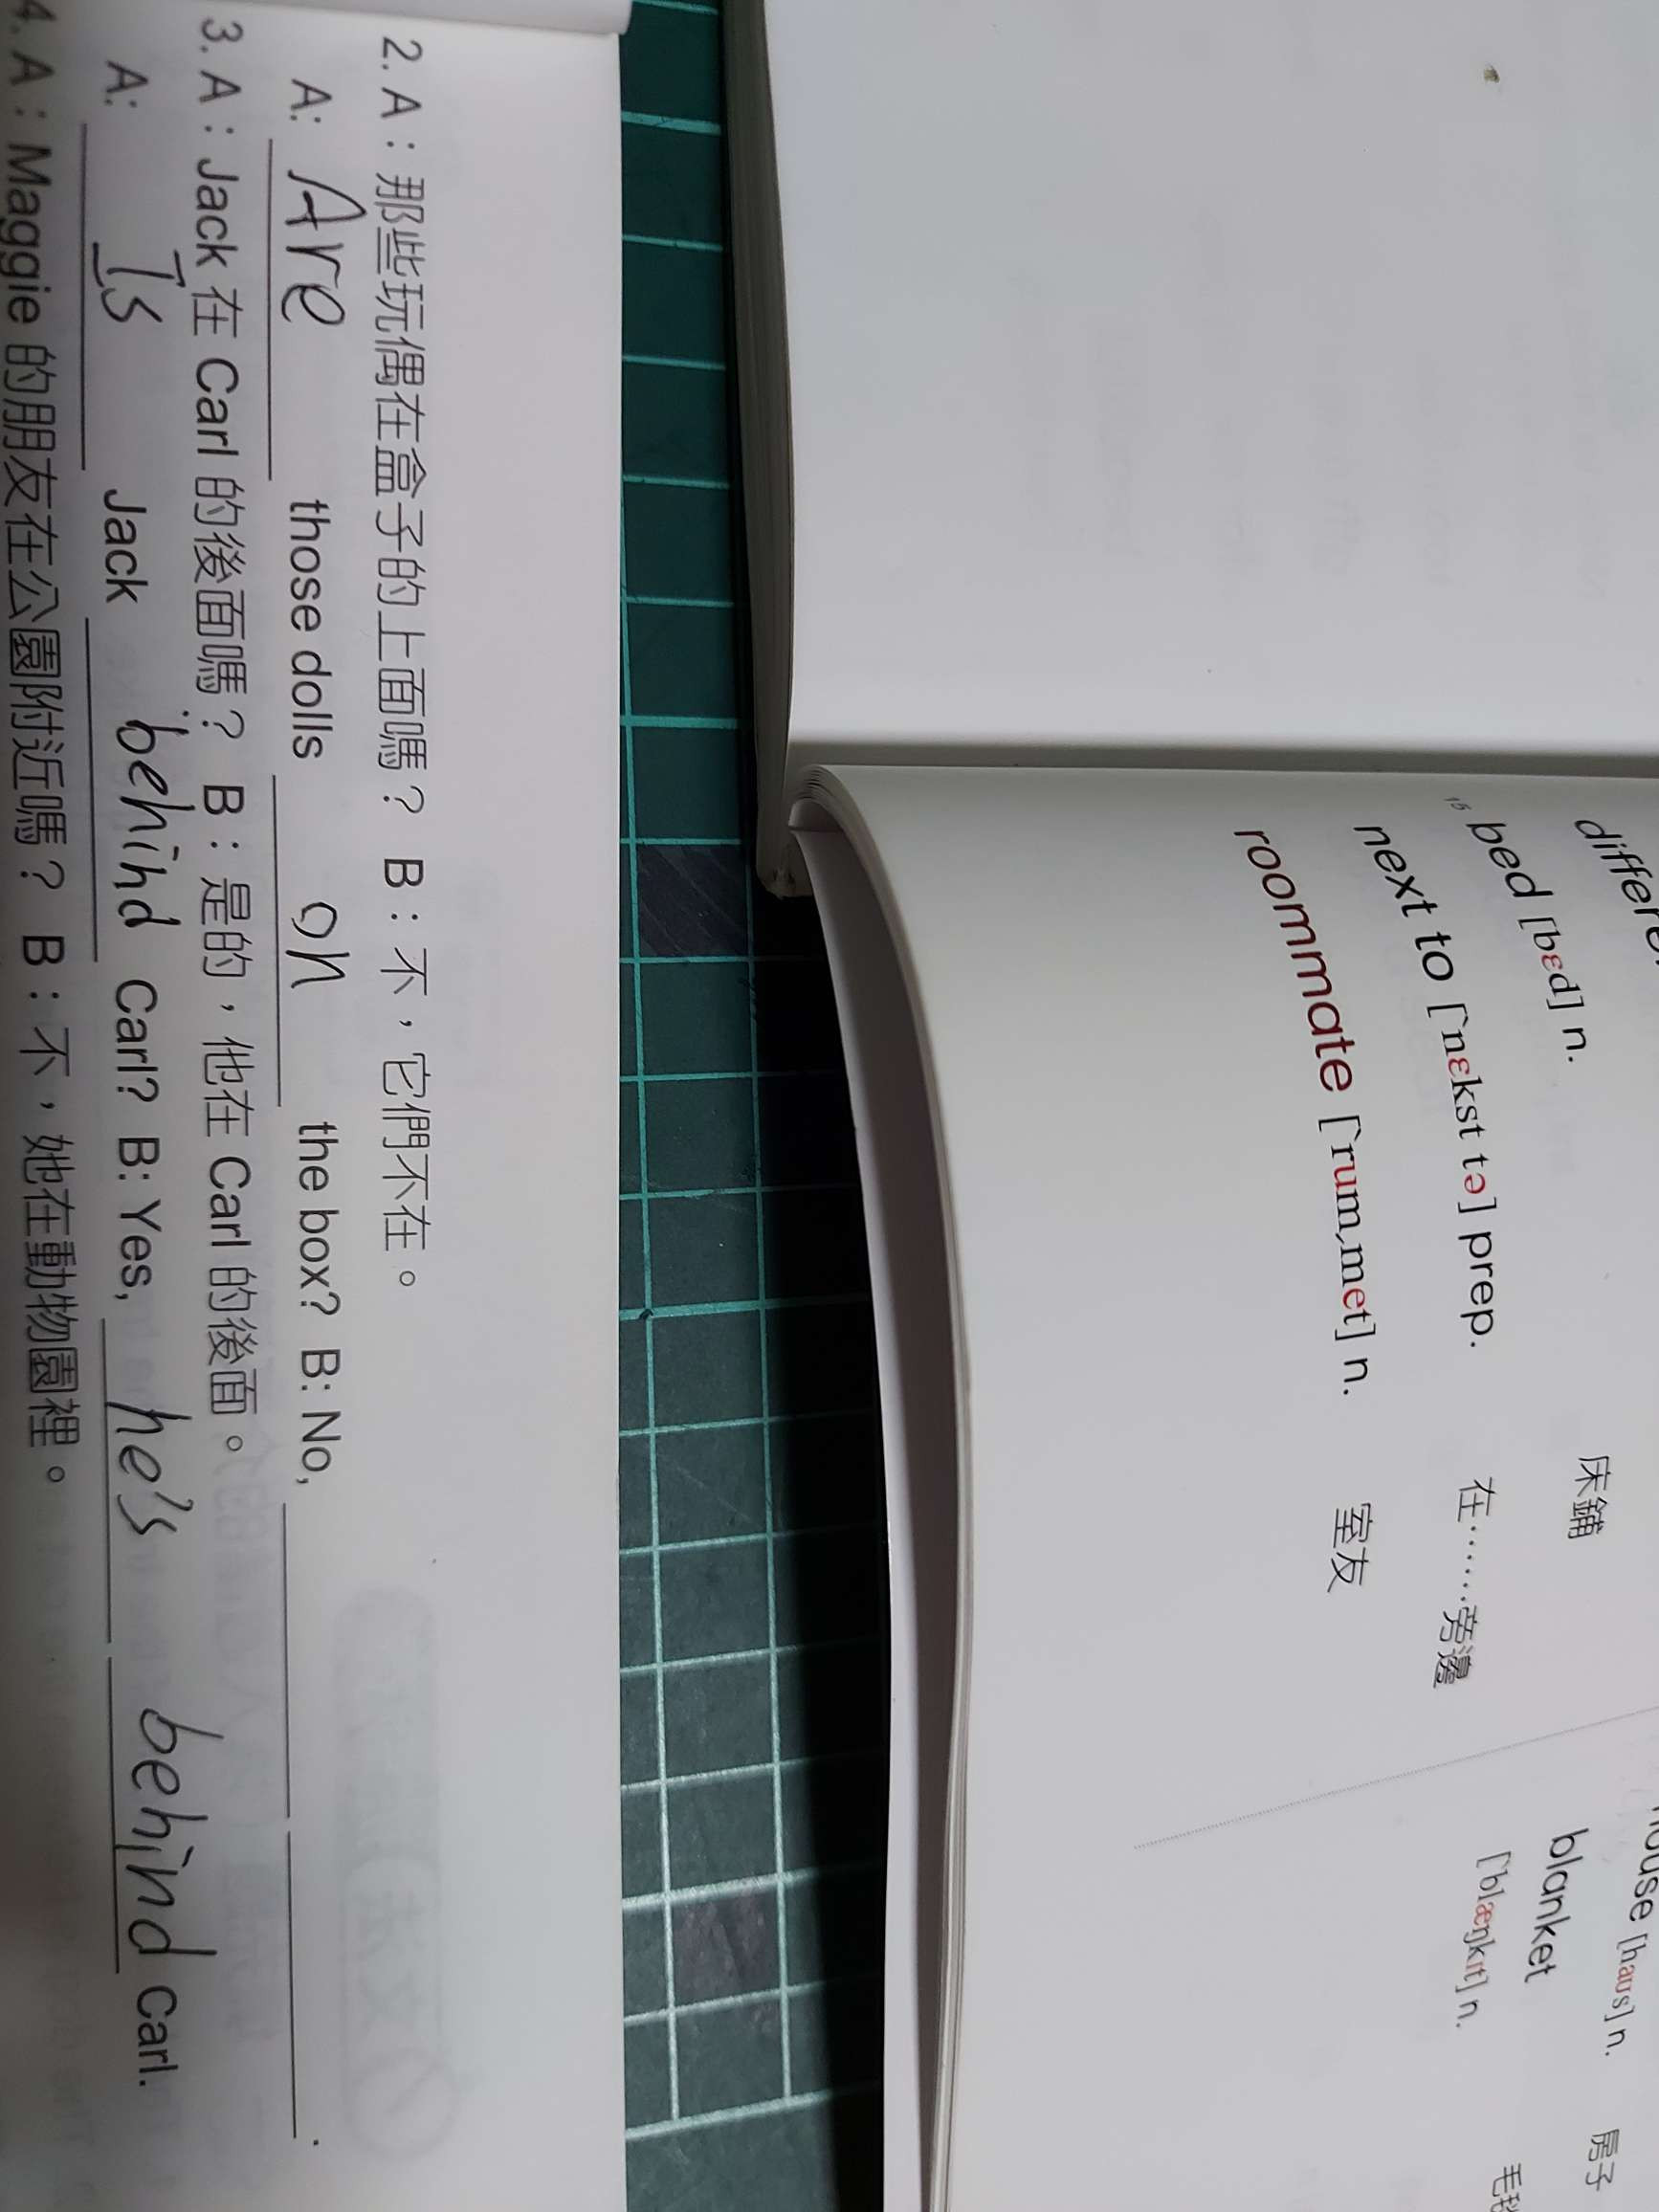 differ
15 bed [bɛd] n. 床鋪
next to [ˋnɛkst tə] prep. 在……旁邊
roommate [ˋrumˏmet] n. 室友
house [haʊs] n. 房子
blanket
[ˋblæŋkɪt] n.
2. A：那些玩偶在盒子的上面嗎？ B：不，它們不在。
A: Are those dolls on the box? B: No, ________ ________.
3. A：Jack 在 Carl 的後面嗎？ B：是的，他在 Carl 的後面。
A: Is Jack behind Carl? B: Yes, he's behind Carl.
4. A：Maggie 的朋友在公園附近嗎？ B：不，她在動物園裡。